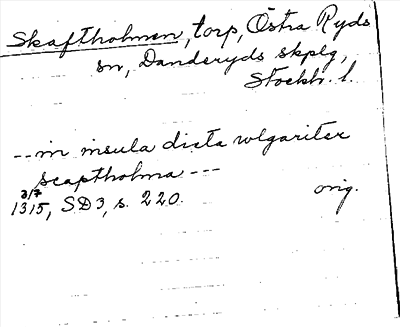 Skaftholmen, torp, Östra Ryds
sn, Danderyds skplg,
Stockh. l.
--- in insula dicta wlgariter
scaptholma ---
3/7 1315, SD 3, s. 220. orig.